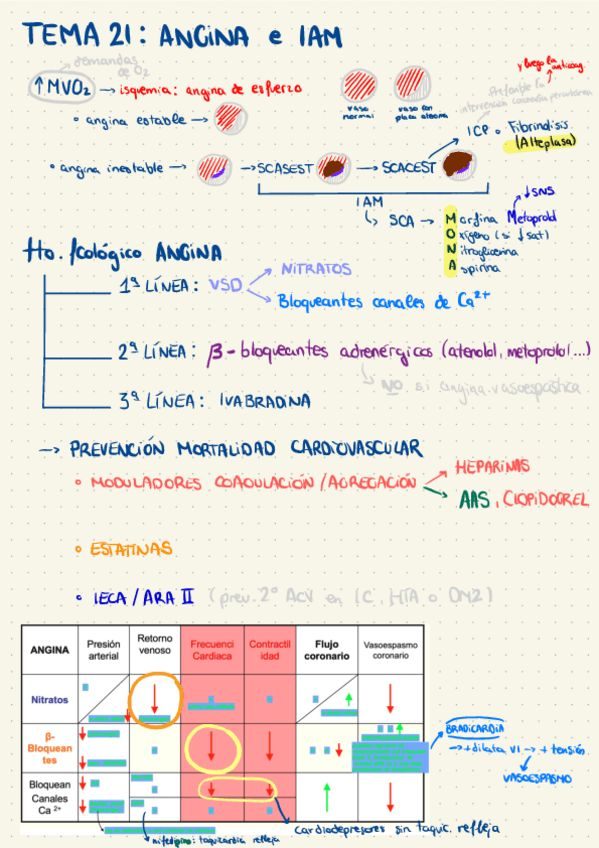 TEMA 21: ANGINA e IAM
demandas
de O2
↑MVO2 → isquemia: angina de esfuerzo
vaso
normal
vaso con
placa ateroma
y luego la
anticoag.
Preferible la
intervención coronaria percutánea
ICP o Fibrinolisis
(Alteplasa)
• angina estable →
• angina inestable → → SCASEST → SCACEST
IAM
↳ SCA → Morfina Metoprolol
↓SNS
Oxígeno (si ↓ sat)
Nitroglicerina
Aspirina
tto. fcológico ANGINA
1ª LÍNEA: VSD
NITRATOS
Bloqueantes canales de Ca2+
2ª LÍNEA: β-bloqueantes adrenérgicos (atenolol, metoprolol...)
↳ NO si angina vasoespástica
3ª LÍNEA: IVABRADINA
→ PREVENCIÓN MORTALIDAD CARDIOVASCULAR
• MODULADORES COAGULACIÓN / AGREGACIÓN
HEPARINAS
AAS, CLOPIDOGREL
• ESTATINAS
• IECA / ARA II (prev. 2º ACV en IC, HTA o DM2)
ANGINA
Presión
arterial
Retorno
venoso
Frecuenci
Cardiaca
Contractil
idad
Flujo
coronario
Vasoespasmo
coronario
Nitratos
β-
Bloquean
tes
Bloquean
Canales
Ca 2+
BRADICARDIA
→ + dilata VI → + tensión
VASOESPASMO
nifedipino: taquicardia refleja
cardiodepresores sin taquic. refleja